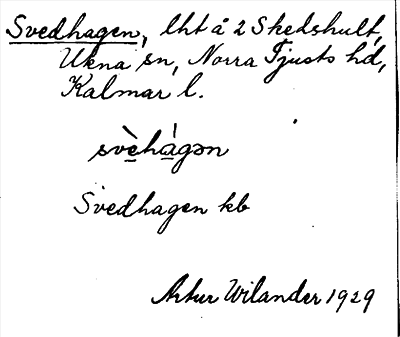 Svedhagen, lht å 2 Skedshult,
Ukna sn, Norra Tjusts hd,
Kalmar l.
svè̱há̱gən
Svedhagen kb
Artur Wilander 1929